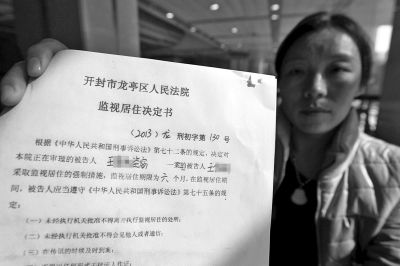 开封市龙亭区人民法院
监视居住决定书
(2013)龙刑初字第130号
根据《中华人民共和国刑事诉讼法》第七十二条的规定，决定对
本院正在审理的被告人 一案的被告人
采取监视居住的强制措施，监视居住期限为六个月，在监视居住期
间，被告人应当遵守《中华人民共和国刑事诉讼法》第七十五条的规
定：
(一)未经执行机关批准不得离开执行监视居住的处所；
(二)未经执行机关批准不得会见他人或者通信；
(三)在传讯的时候及时到案；